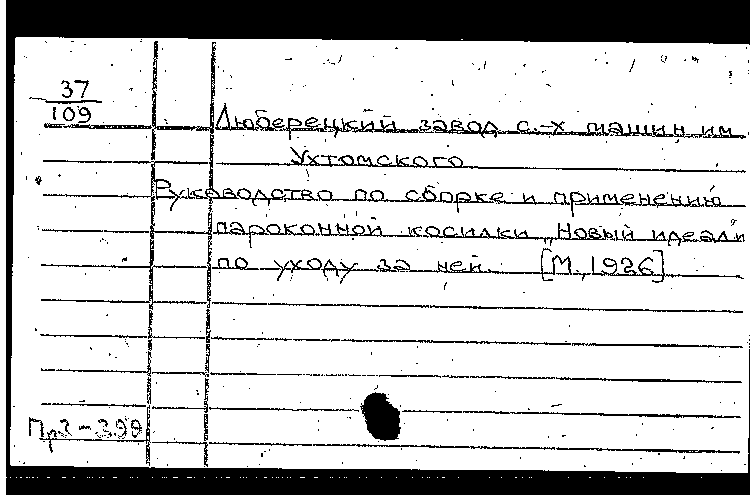 37
109
Люберецкий завод с.-х машин им
Ухтомского
Руководство по сборке и применению
пароконной косилки „Новый идеал" и
по уходу за ней. [М., 1926]
Пр3-399